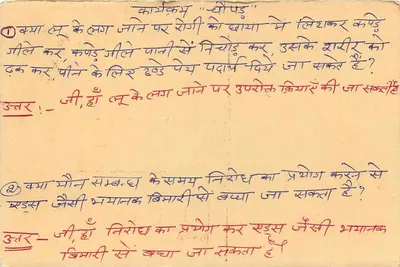 कार्यक्रम "चौपड़"
① क्या लू के लग जाने पर रोगी को छाया में लिटाकर कपड़े
गीले कर, कपड़े गीले पानी से निचोड़ कर, उसके शरीर को
ढक कर, पीने के लिए ठण्डे पेय पदार्थ दिये जा सकते हैं?
उत्तर :- जी, हाँ लू के लग जाने पर उपरोक्त क्रियाएँ की जा सकती है
② क्या यौन सम्बन्ध के समय निरोध का प्रयोग करने से
एड्स जैसी भयानक बिमारी से बच्चा जा सकता है?
उत्तर - जी, हाँ निरोध का प्रयोग कर एड्स जैसी भयानक
बिमारी से बच्चा जा सकता है।